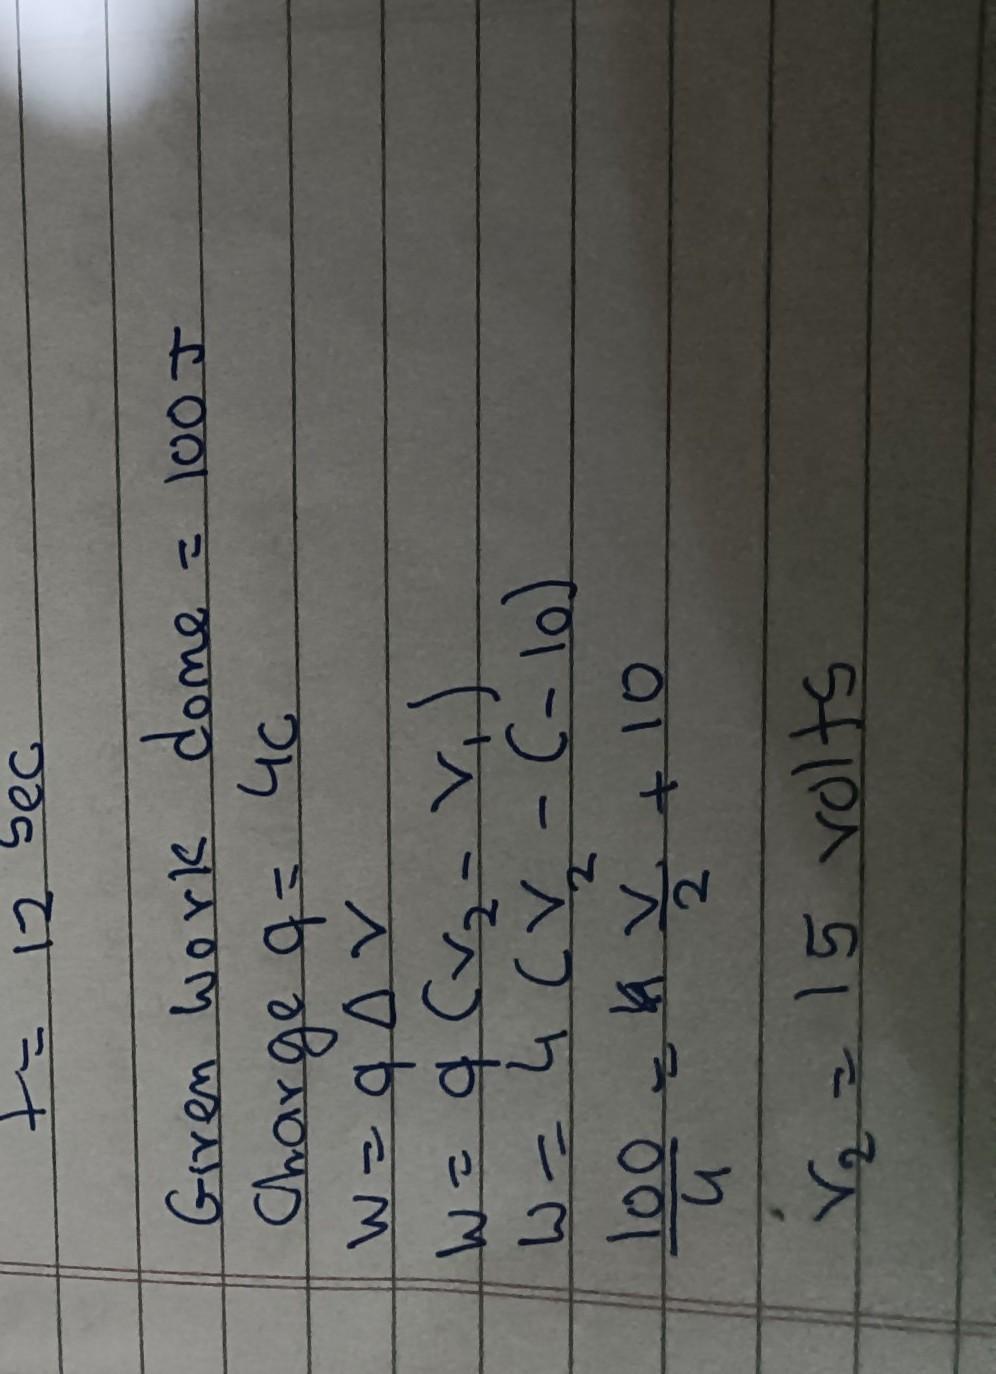 t = 12 sec
Given work done = 100 J
Charge q = 4C
W = q Δ V
W = q (V₂ - V₁)
W = 4 (V₂ - (-10)
100/4 = V₂ + 10
V₂ = 15 volts